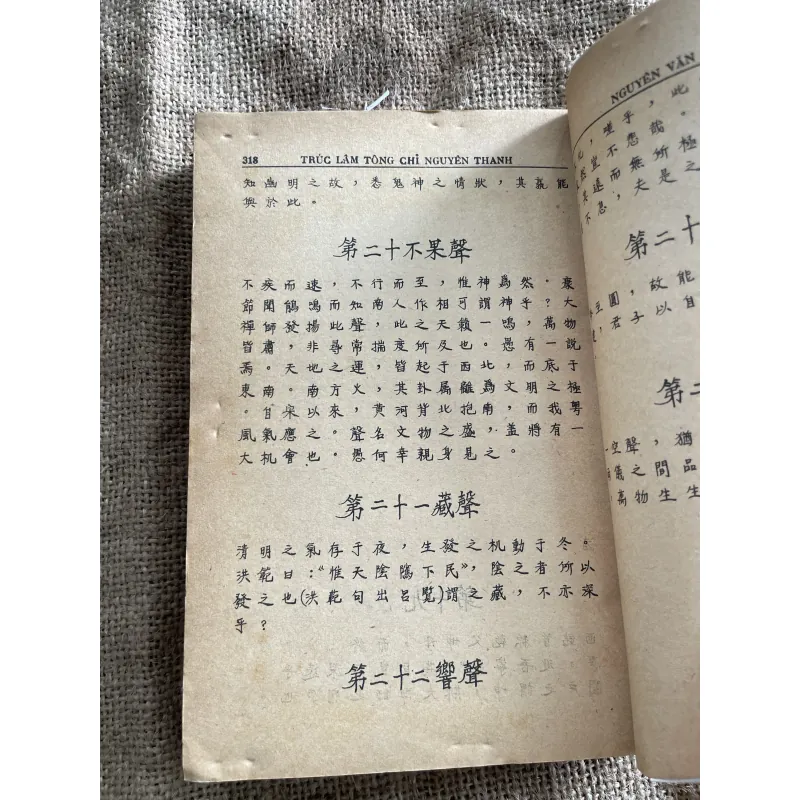 318 TRÚC LÂM TÔNG CHỈ NGUYÊN THANH
知幽明之故，悉鬼神之情狀，其議能
與於此。
第二十不果聲
不疾而速，不行而至，惟神爲然。康
節聞鵑鳴而知南人作相可謂神乎？大
禪師發揚此聲，此之天籟一鳴，萬物
皆肅，非尋常揣度所及也。愚有一說
焉。天地之運，皆起于西北，而底于
東南。南方火，其卦屬離爲文明之極
。自宋以來，黄河背北抱南，而我粤
風氣應之。聲名文物之盛，盖將有一
大机會也。愚何幸親身見之。
第二十一藏聲
清明之氣存于夜，生發之机動于冬。
洪範曰：“惟天陰隲下民”，陰之者所以
發之也(洪範句出呂覧)謂之藏，不亦深
乎？
第二十二響聲
NGUYỄN VĂN
嘆乎，此
宜不悉哉。
遠而無所極
不息，夫是之
第二十
至圓，故能
君子以自
第二
空聲，猶
儀之間品
萬物生生